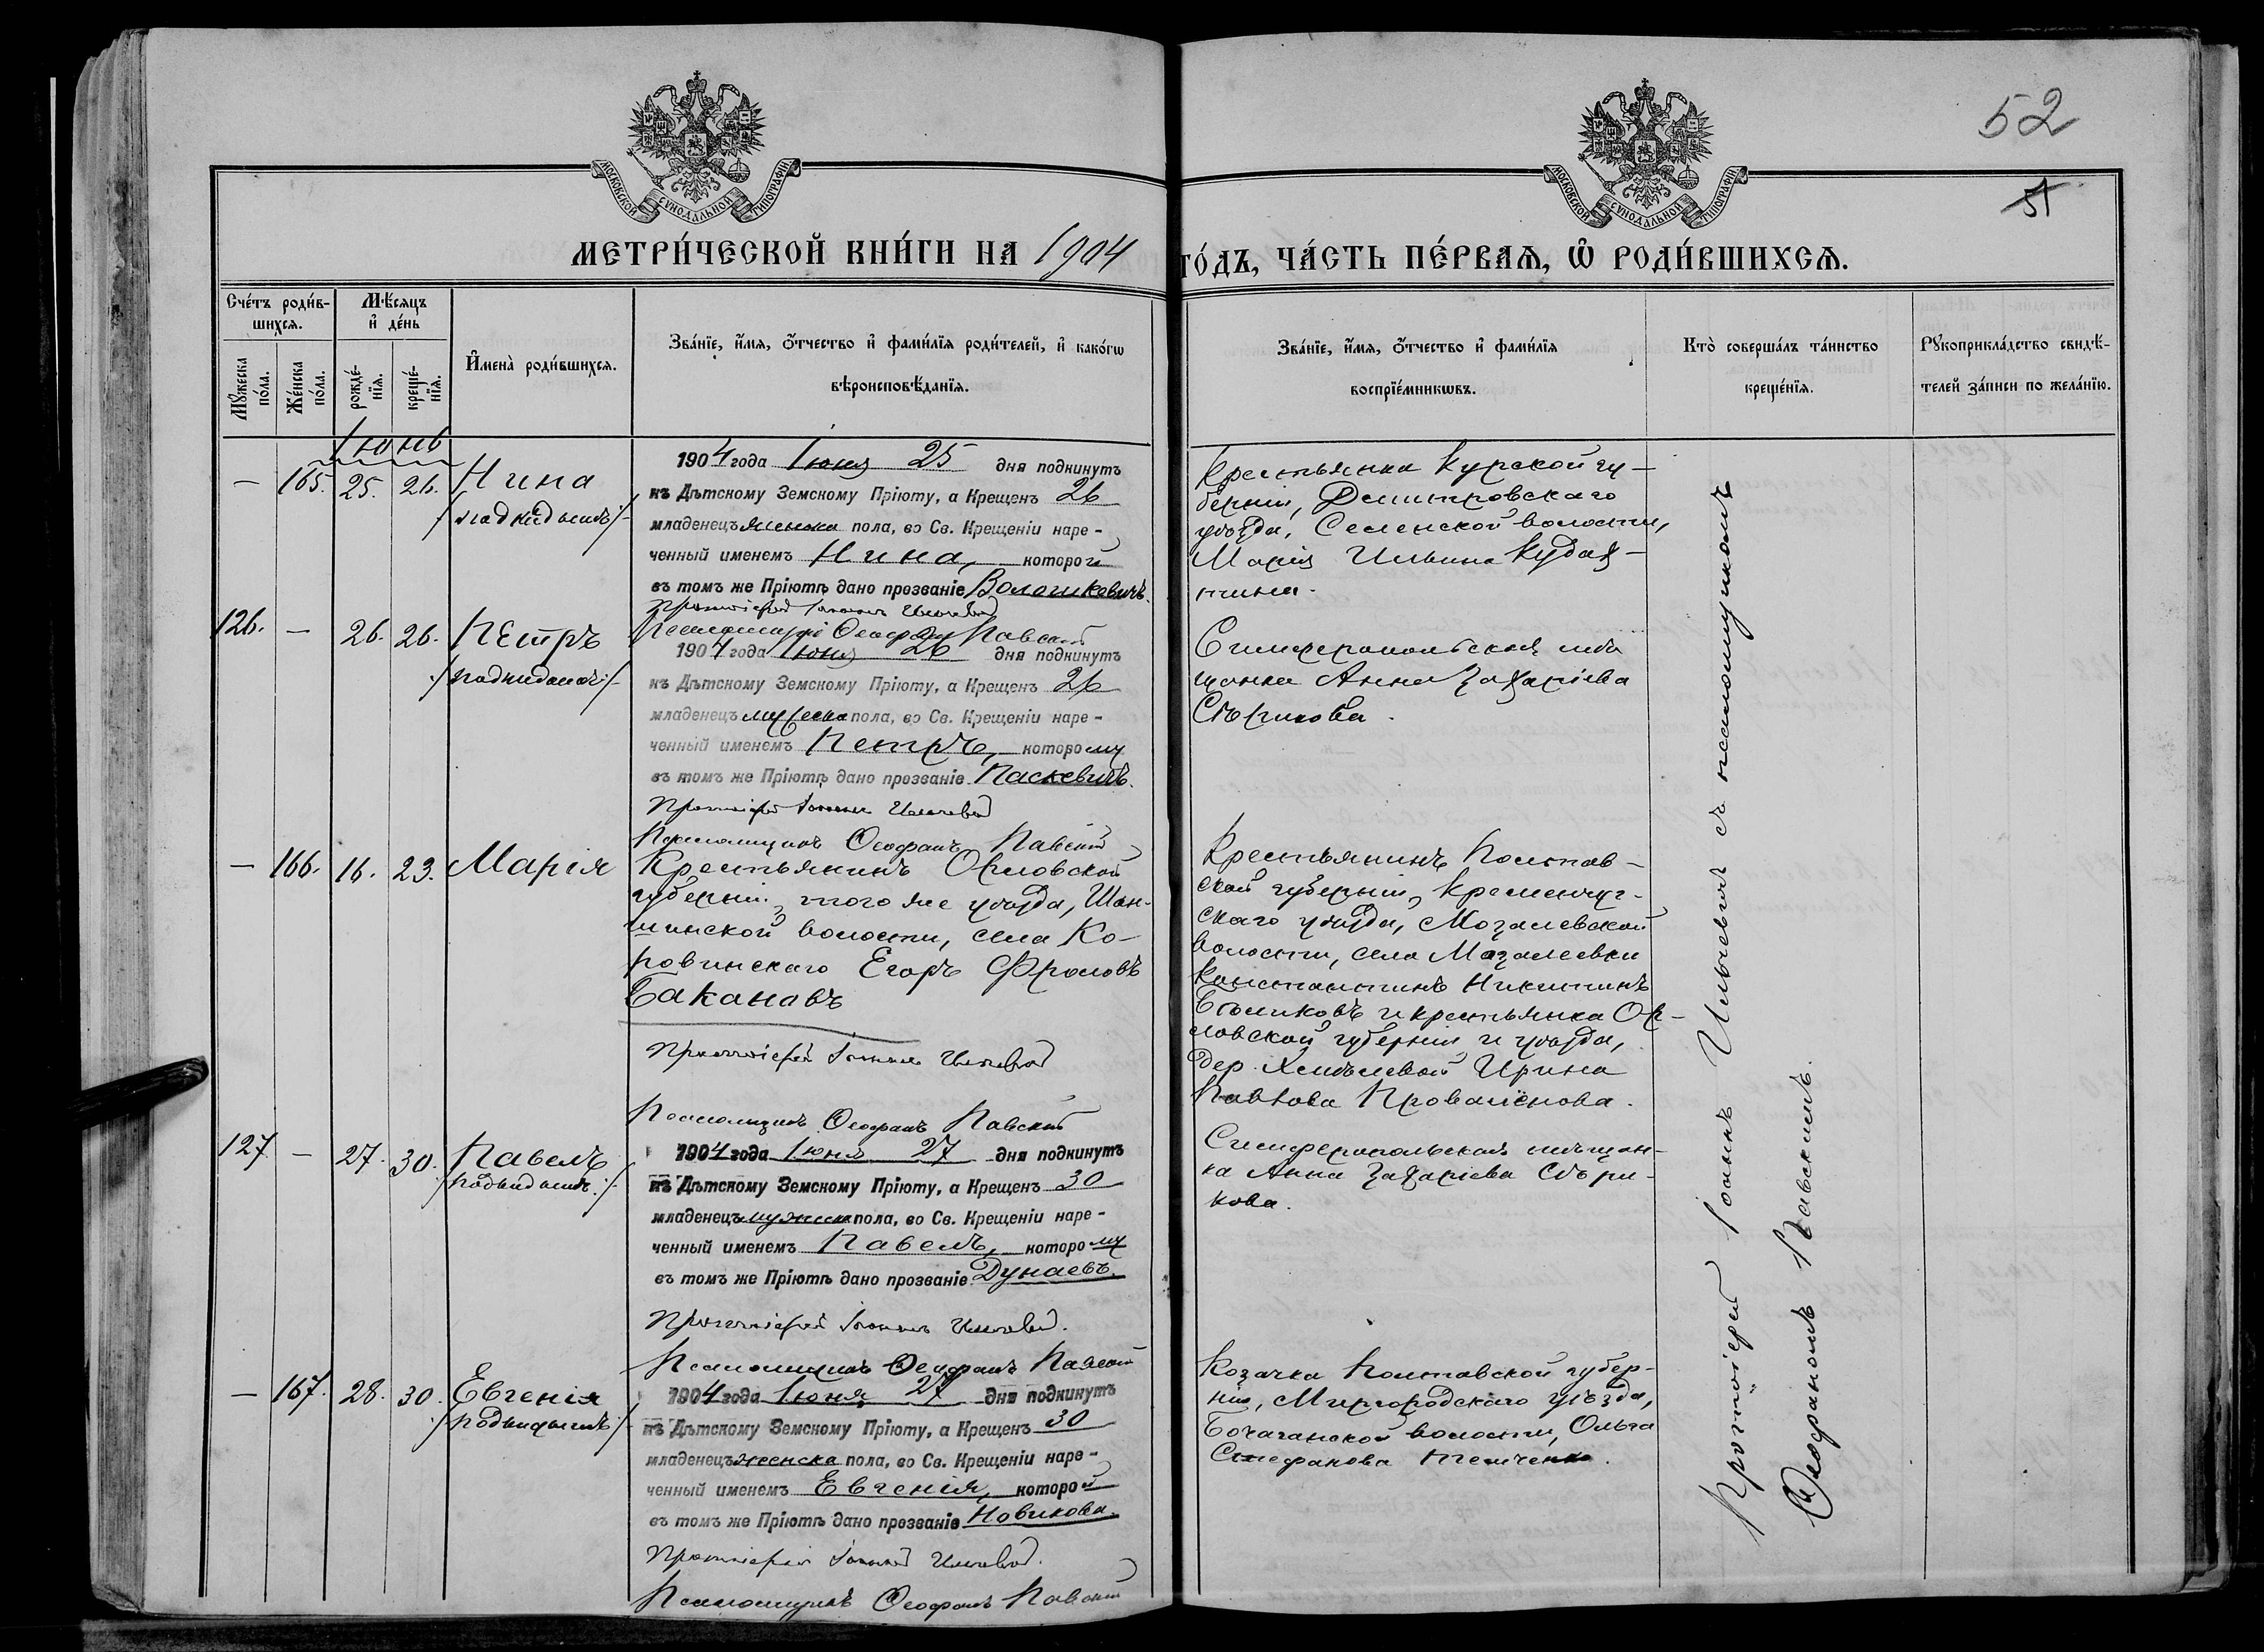 52
51
МОСКОВСКОЙ СѴНОДАЛЬНОЙ ТИПОГРАФІИ
МОСКОВСКОЙ СѴНОДАЛЬНОЙ ТИПОГРАФІИ
МЕТРИ́ЧЕСКОЙ КНИ́ГИ НА 1904
ГО́ДЪ, ЧА́СТЬ ПЕ́РВАѦ, Ѽ РОДИ́ВШИХСѦ.
Сче́тъ роди́в-
шихсѧ.
Мꙋжеска по́ла.
Же́нска по́ла.
Мѣ́сѧцъ
и҆ де́нь
рожде́-
нїѧ.
креще́-
нїѧ.
И҆мена̀ роди́вшихсѧ.
Зва́нїе, и҆́мѧ, ѻ҆́тчество и҆ фами́лїѧ роди́телей, и҆ како́гѡ
вѣроисповѣ́данїѧ.
Зва́нїе, и҆́мѧ, ѻ҆́тчество и҆ фами́лїѧ
воспрїе́мникѡвъ.
Кто̀ соверша́лъ та́инство
креще́нїѧ.
Рꙋкоприкла́дство свидѣ́-
телей за́писи по жела́нїю.
Іюнь
— 165. 25. 26. Нина
/подкидышъ/
1904 года Іюня 25 дня подкинутъ
къ Дѣтскому Земскому Пріюту, а Крещенъ 26
младенецъ женска пола, во Св. Крещеніи наре-
ченный именемъ Нина, которой
въ томъ же Пріютѣ дано прозваніе Волошкевичъ.
Протоіерей Іоаннъ Ильчевич
Псаломщикъ Ѳеофанъ Павскій
Крестьянка Курской гу-
берніи, Дмитровскаго
уѣзда, Селенской волости,
Марія Ильина
126. — 26. 26. Петръ
/подкидышъ/
1904 года Іюня 26 дня подкинутъ
къ Дѣтскому Земскому Пріюту, а Крещенъ 26
младенецъ мужеска пола, во Св. Крещеніи наре-
ченный именемъ Петръ, которому
въ томъ же Пріютѣ дано прозваніе Паскевичъ.
Протоіерей Іоаннъ
Псаломщикъ Ѳеофанъ Павскій
Симферопольская мѣ-
щанка Анна Захаріева
Сѣрикова.
— 166. 16. 23. Марія
Крестьянинъ Орловской
губерніи, того же уѣзда,
волости, села Ко-
ровинскаго Егоръ Фроловъ
Бакановъ
Протоіерей Іоаннъ
Псаломщикъ Ѳеофанъ Павскій
Крестьянинъ Полтав-
ской губерніи, Кременчуг-
скаго уѣзда, Мозалевской
волости, села Мозалеевки
Константинъ Никитинъ
и крестьянка Ор-
ловской губерніи и уѣзда,
дер. Хмѣлевой Ирина
Павлова Проваленова.
127 — 27. 30. Павелъ
/подкидышъ/
1904 года Іюня 27 дня подкинутъ
къ Дѣтскому Земскому Пріюту, а Крещенъ 30
младенецъ мужеска пола, во Св. Крещеніи наре-
ченный именемъ Павелъ, которому
въ томъ же Пріютѣ дано прозваніе Дунаевъ.
Протоіерей Іоаннъ
Псаломщикъ Ѳеофанъ Павскій
Симферопольская мѣщан-
ка Анна Захаріева Сѣри-
кова.
— 167. 28. 30. Евгенія
/подкидышъ/
1904 года Іюня 27 дня подкинутъ
къ Дѣтскому Земскому Пріюту, а Крещенъ 30
младенецъ женска пола, во Св. Крещеніи наре-
ченный именемъ Евгенія, которой
въ томъ же Пріютѣ дано прозваніе Новикова.
Протоіерей Іоаннъ
Псаломщикъ Ѳеофанъ Павскій
Козачка Полтавской губер-
ніи, Миргородскаго уѣзда,
волости, Ольга
Стефанова
Протоіерей Іоаннъ съ псаломщикомъ
Ѳеофаномъ Павскимъ.